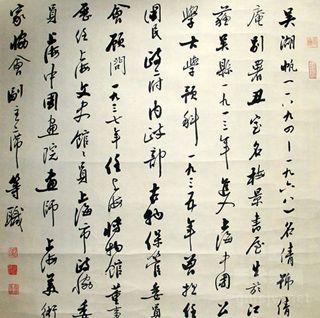 吴湖帆（一八九四－一九六八）名倩號倩
庵别署丑簃名梅景書屋生於江
蘇吴縣一九一三年進入上海中国公
學士學预科一九三五年曾担任
國民政府内政部古物保管委員
會顧問一九三七年任上海博物館董事
歷任上海文史館館員上海市政協委
員上海中国畫院畫師上海美術
家協會副主席等職